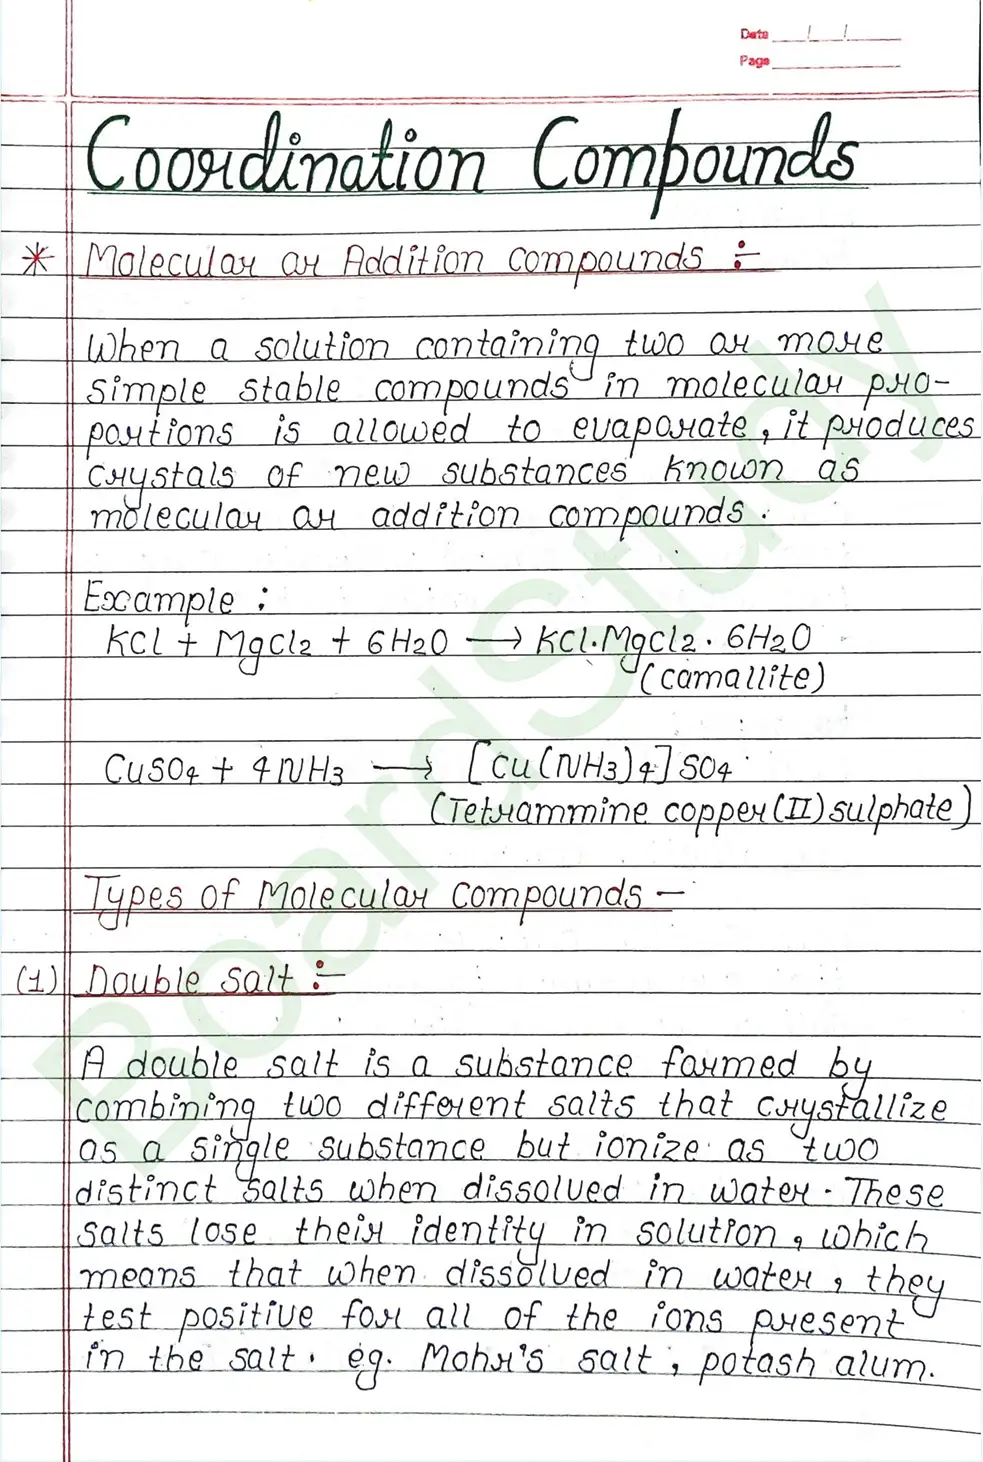 Date / /
Page
Coordination Compounds
* Molecular or Addition compounds :-
When a solution containing two or more
simple stable compounds in molecular pro-
portions is allowed to evaporate, it produces
crystals of new substances known as
molecular or addition compounds.
Example :
KCl + MgCl2 + 6H2O → KCl.MgCl2.6H2O
(camallite)
CuSO4 + 4NH3 → [Cu(NH3)4]SO4
(Tetrammine copper(II) sulphate)
Types of Molecular Compounds -
(1) Double salt :-
A double salt is a substance formed by
combining two different salts that crystallize
as a single substance but ionize as two
distinct salts when dissolved in water. These
salts lose their identity in solution, which
means that when dissolved in water, they
test positive for all of the ions present
in the salt. eg. Mohr's salt, potash alum.
BoardStudy